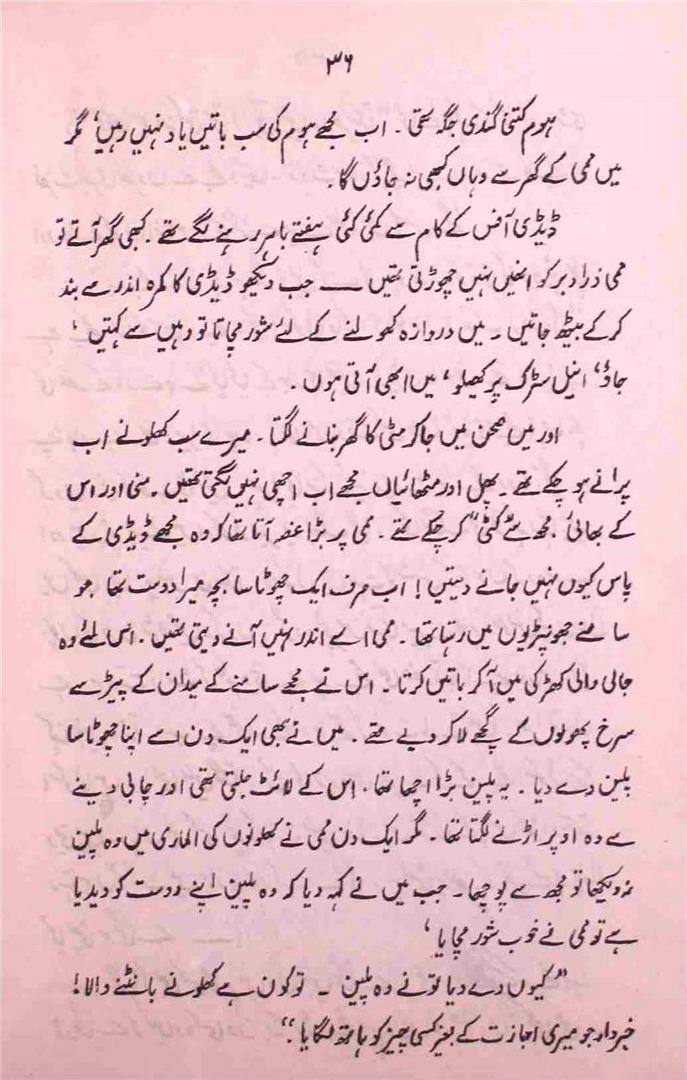 ۳۶
ہوم کتنی گندی جگہ تھی ۔ اب مجھے ہوم کی سب باتیں یاد نہیں رہیں، مگر
میں ممی کے گھر سے وہاں کبھی نہ جاؤں گا ۔
ڈیڈی آفس کے کام سے کئی کئی ہفتے باہر رہنے لگے تھے ۔ کبھی گھر آتے تو
ممی ذرا دیر کو انھیں نہیں چھوڑتی تھیں ـــــ جب دیکھو ڈیڈی کا کمرہ اندر سے بند
کر کے بیٹھ جاتیں ۔ میں دروازہ کھولنے کے لئے شور مچاتا تو وہیں سے کہتیں ،
جاؤ، انیل سڑک پر کھیلو، میں ابھی آتی ہوں ۔
اور میں صحن میں جا کر مٹی کا گھر بنانے لگتا ۔ میرے سب کھلونے اب
پرانے ہو چکے تھے ۔ پھل اور مٹھائیاں مجھے اب اچھی نہیں لگتی تھیں ۔ منی اور اس
کے بھائی مجھ سے "کٹی" کر چکے تھے ۔ ممی پر بڑا غصہ آتا تھا کہ وہ مجھے ڈیڈی کے
پاس کیوں نہیں جانے دیتیں! اب صرف ایک چھوٹا سا بچہ میرا دوست تھا جو
سامنے جھونپڑیوں میں رہتا تھا ۔ ممی اسے اندر نہیں آنے دیتی تھیں ۔ اس لئے وہ
جالی والی کھڑکی میں آ کر باتیں کرتا ۔ اس نے مجھے سامنے کے میدان کے پیڑ سے
سرخ پھولوں کے گچھے لا کر دیے تھے ۔ میں نے بھی ایک دن اسے اپنا چھوٹا سا
پلین دے دیا ۔ یہ پلین بڑا اچھا تھا ۔ اس کے لائٹ جلتی تھی اور چابی دینے
سے وہ اوپر اڑنے لگتا تھا ۔ مگر ایک دن ممی نے کھلونوں کی الماری میں وہ پلین
نہ دیکھا تو مجھ سے پوچھا ۔ جب میں نے کہہ دیا کہ وہ پلین اپنے دوست کو دیدیا
ہے تو ممی نے خوب شور مچایا ،
"کیوں دے دیا تو نے وہ پلین ۔ تو کون ہے کھلونے بانٹنے والا!
خبردار جو میری اجازت کے بغیر کسی چیز کو ہاتھ لگایا ۔"